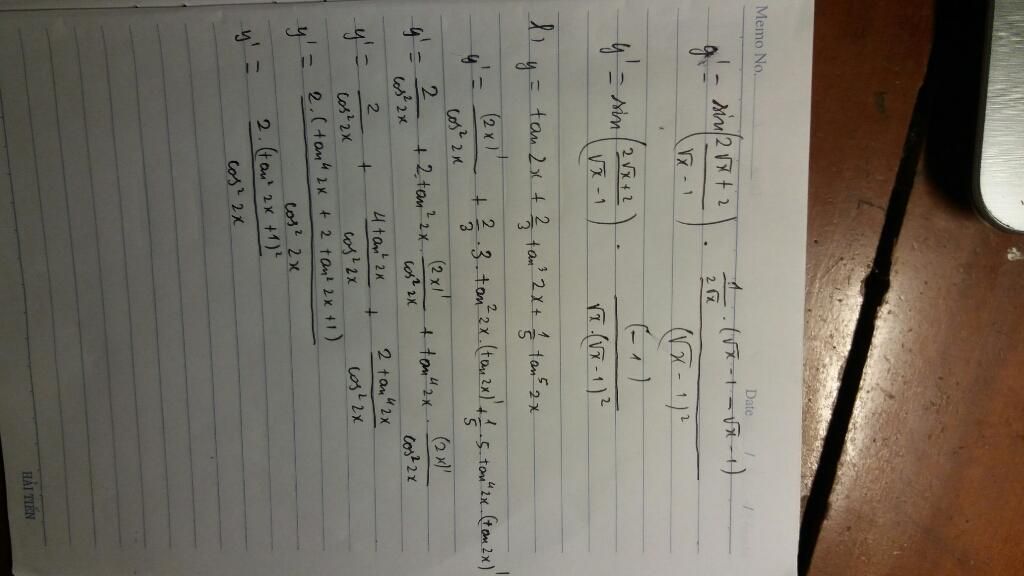 Memo No.
Date / /
y' = sin(2√x + 2 / √x - 1) . 1/2√x . (√x - 1 - √x - 1) / (√x - 1)²
y' = sin(2√x + 2 / √x - 1) . (-1) / √x . (√x - 1)²
l, y = tan 2x + 2/3 tan³ 2x + 1/5 tan⁵ 2x
y' = (2x)' / cos² 2x + 2/3 . 3 . tan² 2x . (tan 2x)' + 1/5 . 5 . tan⁴ 2x . (tan 2x)'
y' = 2 / cos² 2x + 2 tan² 2x . (2x)' / cos² 2x + tan⁴ 2x . (2x)' / cos² 2x
y' = 2 / cos² 2x + 4 tan² 2x / cos² 2x + 2 tan⁴ 2x / cos² 2x
y' = 2 . (tan⁴ 2x + 2 tan² 2x + 1) / cos² 2x
y' = 2 . (tan² 2x + 1)² / cos² 2x
HẢI TIẾN